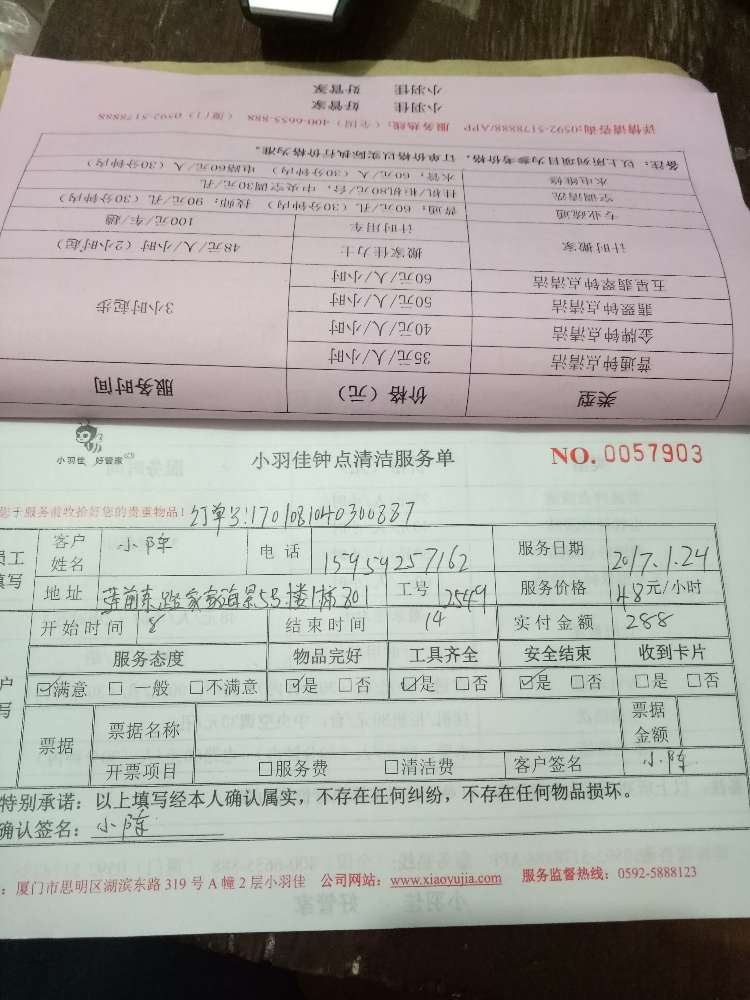 小羽佳 好管家
小羽佳 好管家
详情请咨询:0592-5178888/APP 服务热线:(全国)400-6655-888 (厦门)0592-5178888
备注:以上所列项目为参考价格,订单价格以实际执行价格为准。
水电维修 水管,60元/人(30分钟内) 电路60元/人(30分钟内)
空调清洗 挂机/柜机80元/台,中央空调30元/孔
专业疏通 普通:60元/孔(30分钟内) 技师:90元/孔(30分钟内)
计时搬家 计时用车 100元/车/趟
搬家佳力士 48元/人/小时(2小时起)
五星翡翠钟点清洁 60元/人/小时 3小时起步
翡翠钟点清洁 50元/人/小时
金牌钟点清洁 40元/人/小时
普通钟点清洁 35元/人/小时
类型 价格(元) 服务时间
小羽佳 好管家 小羽佳钟点清洁服务单 NO. 0057903
于服务前收拾好您的贵重物品! 订单号:1701081040300887
员工填写 客户姓名 小陈 电话 15959257162 服务日期 2017.1.24
地址 莲前东路家家海景5号楼1梯801 工号 2549 服务价格 48元/小时
开始时间 8 结束时间 14 实付金额 288
服务态度 物品完好 工具齐全 安全结束 收到卡片
☑满意 □一般 □不满意 ☑是 □否 ☑是 □否 ☑是 □否 □是 □否
票据 票据名称 票据金额
开票项目 □服务费 □清洁费 客户签名 小陈
特别承诺:以上填写经本人确认属实,不存在任何纠纷,不存在任何物品损坏。
确认签名:小陈
:厦门市思明区湖滨东路 319 号 A 幢 2 层小羽佳 公司网站:www.xiaoyujia.com 服务监督热线:0592-5888123